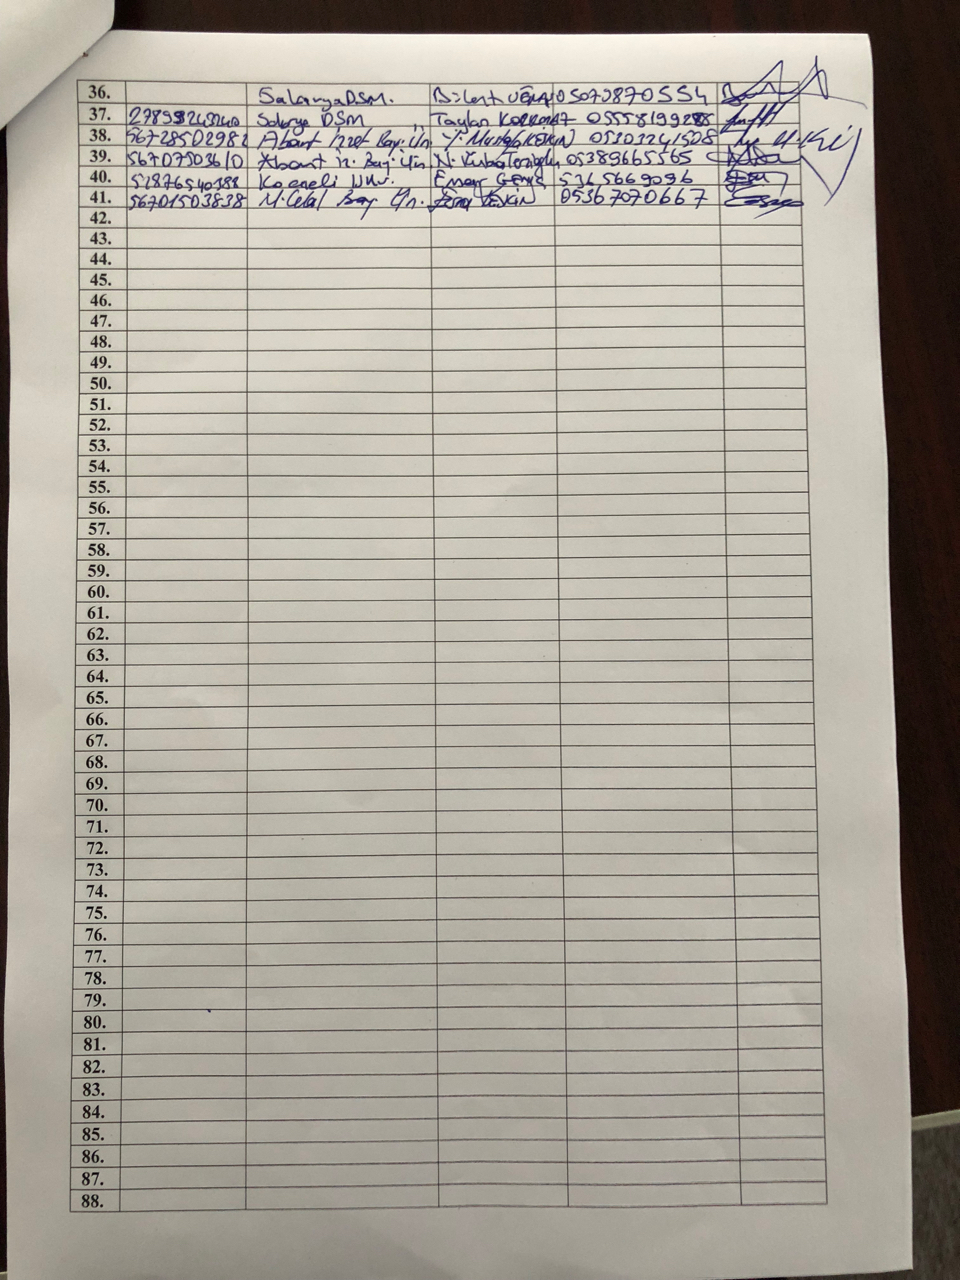 36. Sakarya DSM. Bülent 05072870554
37. Sakarya DSM Taylan KORKMAZ 0555819928
38. 56728502982 Abant İzzet Bay. Ün. Y. Mustafa KESKİN 05303241508
39. 56707503610 Abant İz. Bay. Ün. N. 05389665565
40. 51876540388 Kocaeli Ünv. Emay Genç 5365669096
41. 56701503838 M. Celal Bay Ün. KESKİN 05367070667
42.
43.
44.
45.
46.
47.
48.
49.
50.
51.
52.
53.
54.
55.
56.
57.
58.
59.
60.
61.
62.
63.
64.
65.
66.
67.
68.
69.
70.
71.
72.
73.
74.
75.
76.
77.
78.
79.
80.
81.
82.
83.
84.
85.
86.
87.
88.